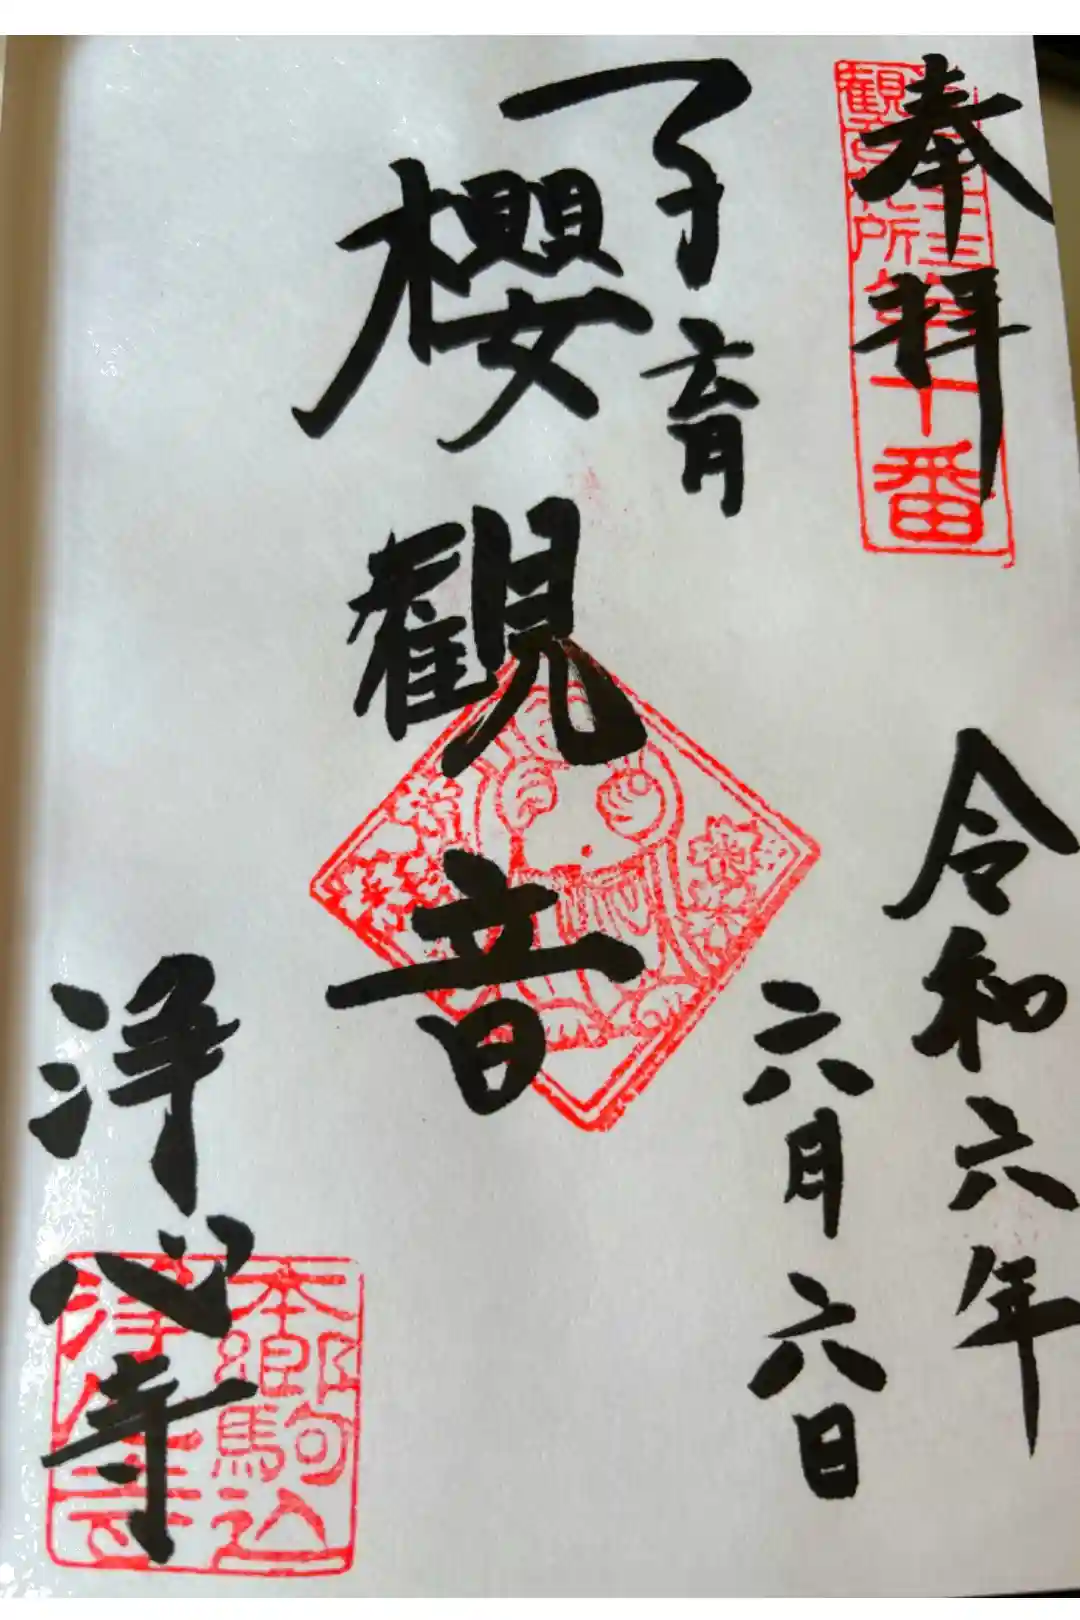 奉拝
第十番
令和六年
六月六日
子育
櫻觀音
浄心寺
本郷駒込
浄心寺